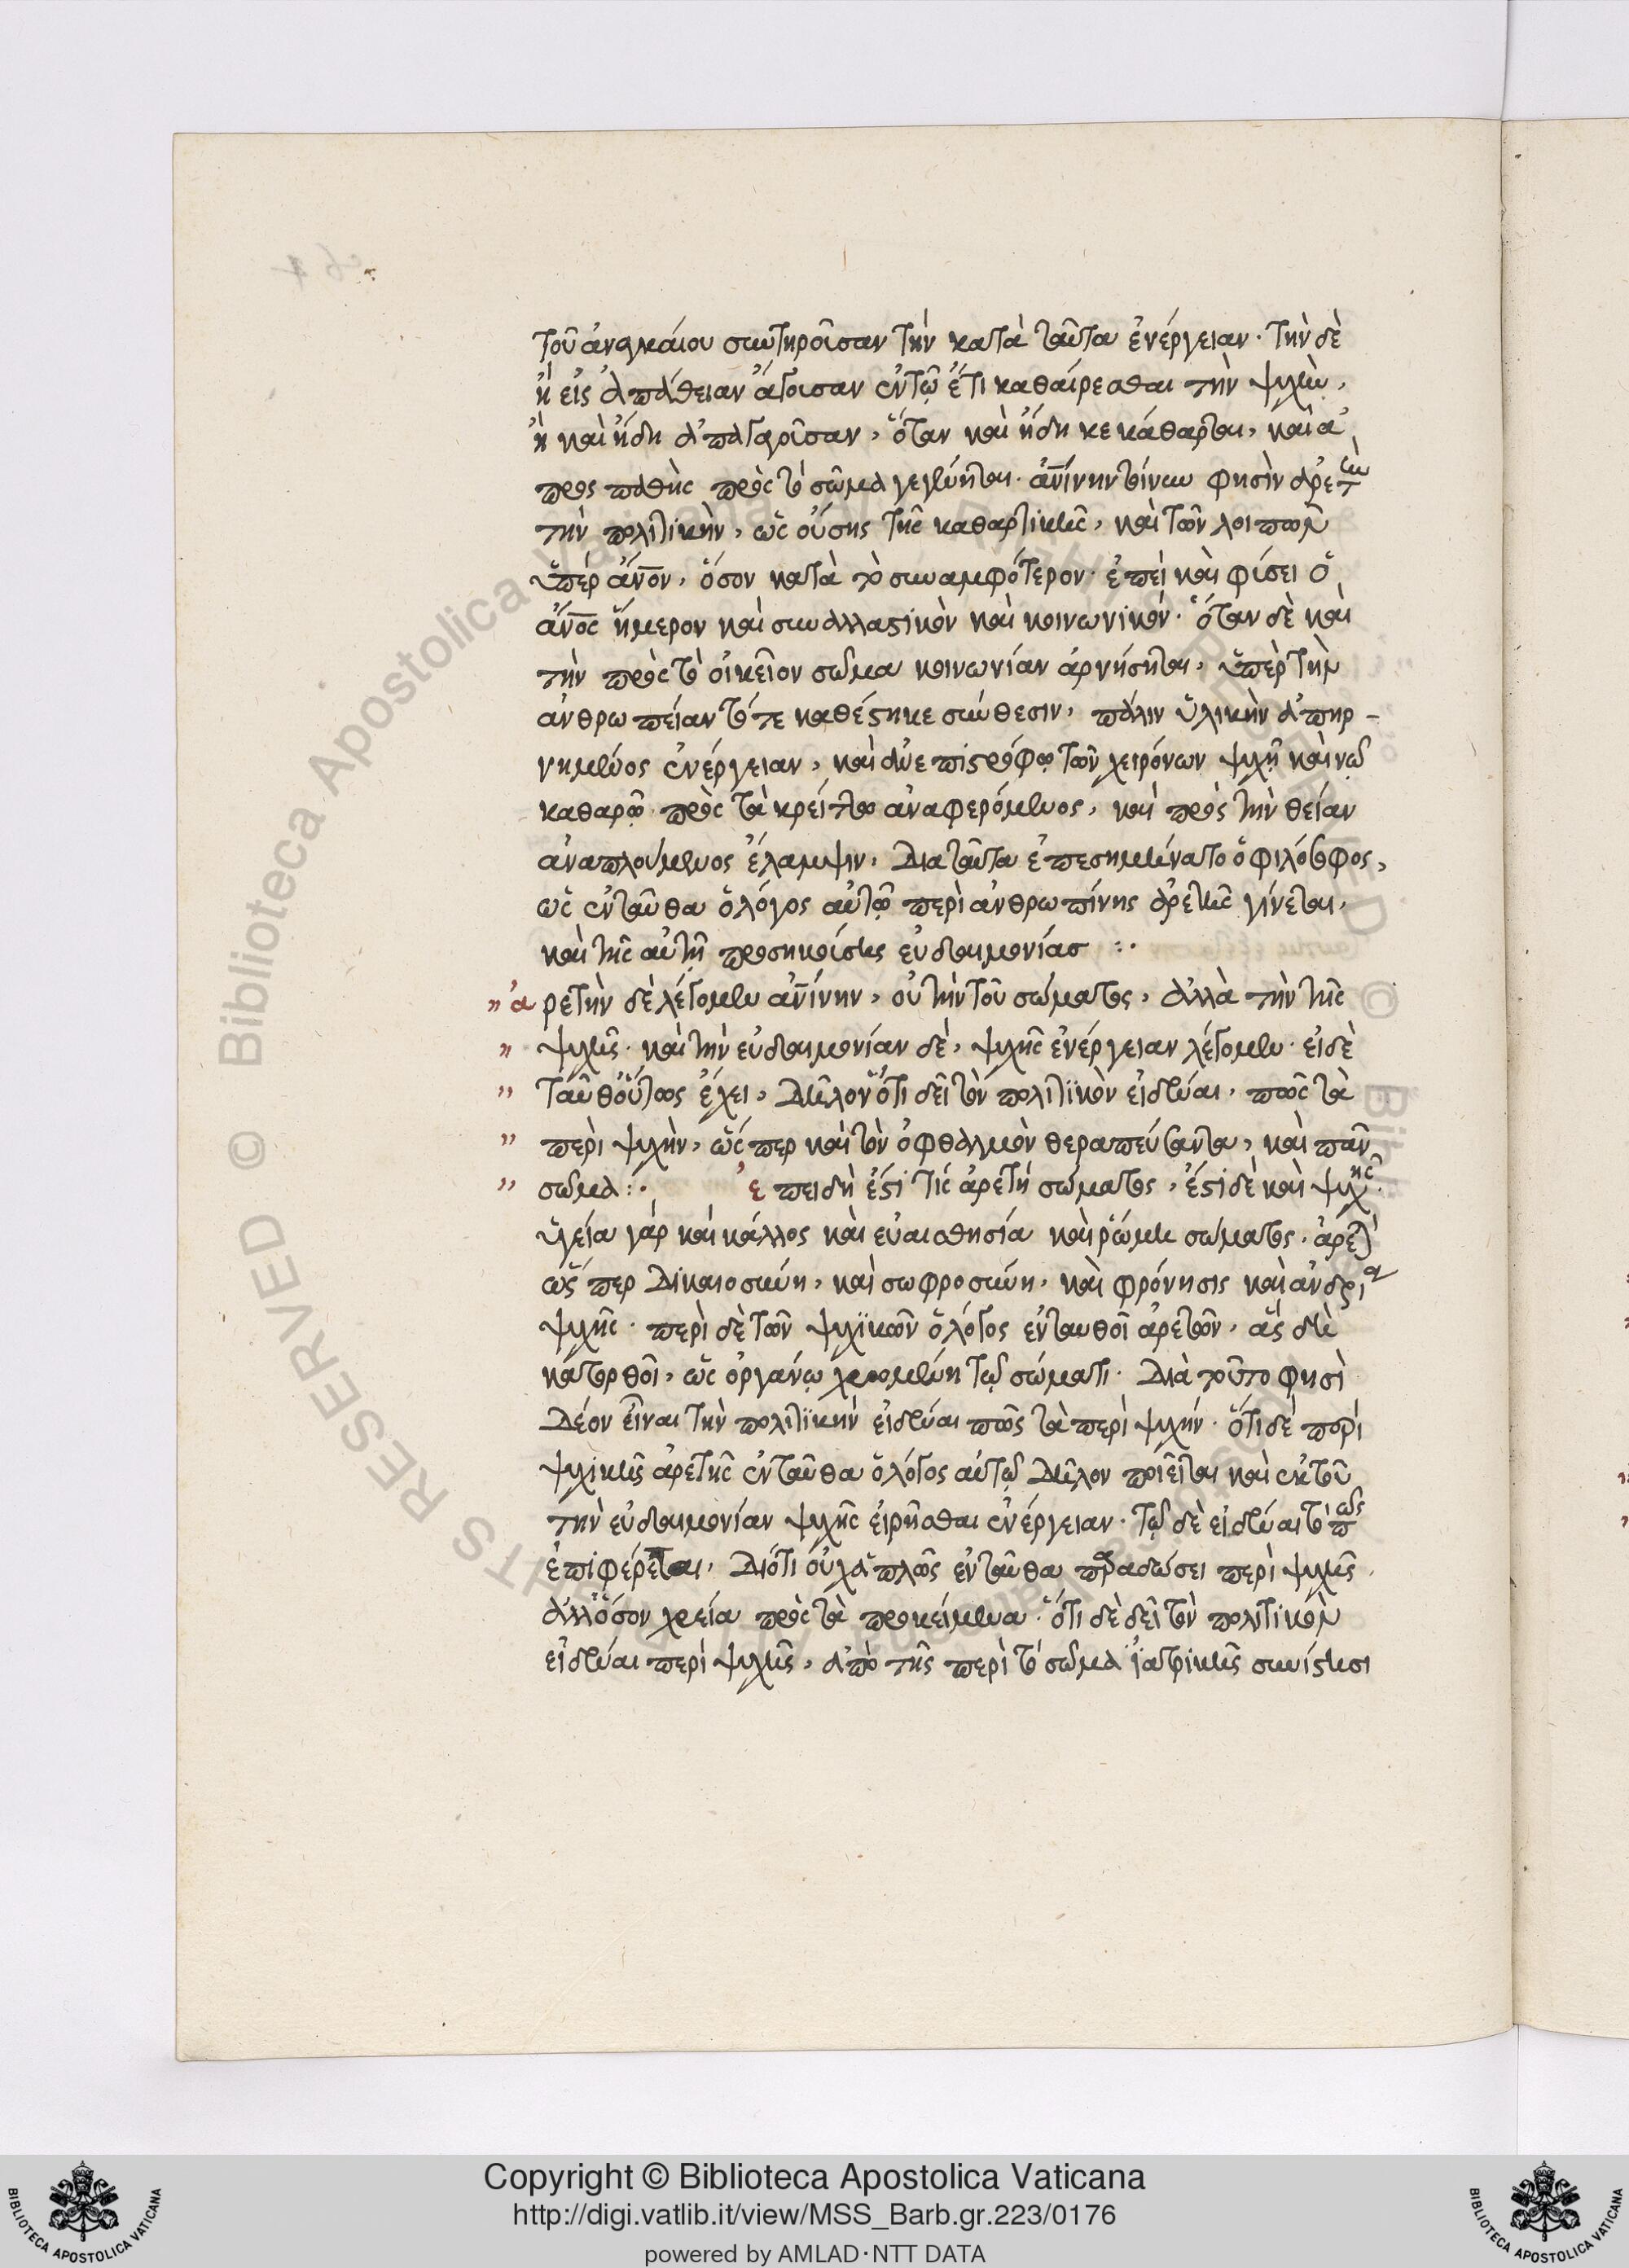 τοῦ ἀναγκαίου συντηροῦσαν τὴν κατὰ ταῦτα ἐνέργειαν· τὴν δὲ
ἢ εἰς ἀπάθειαν ἄγουσαν ἐν τῷ ἔτι καθαίρεσθαι τὴν ψυχὴν,
ἢ καὶ ἤδη ἀπαγαγοῦσαν, ὅταν καὶ ἤδη κεκάθαρται, καὶ ἀ
προςπαθὴς πρὸς τὸ σῶμα γεγένηται· ἀνίνην τοίνυν φησὶν ἀρετὴν
τὴν πολιτικὴν, ὡς οὔσης τῆς καθαρτικῆς, καὶ τῶν λοιπῶν
ὑπὲρ ἄνον, ὅσον κατὰ τὸ συναμφότερον· ἐπεὶ καὶ φύσει ὁ
ἄνος ἥμερον καὶ συναλλακτικὸν καὶ κοινωνικόν· ὅταν δὲ καὶ
τὴν πρὸς τὸ οἰκεῖον σῶμα κοινωνίαν ἀρνήσηται, ὑπὲρ τὴν
ἀνθρωπείαν τότε καθέστηκε σύνθεσιν, πᾶσαν ὑλικὴν ἀπηρ-
νημένος ἐνέργειαν, καὶ ἀνεπιστρόφῳ τῶν χειρόνων ψυχῇ καὶ νῷ
καθαρῷ πρὸς τὰ κρείττω ἀναφερόμενος, καὶ πρὸς τὴν θείαν
ἀναπλούμενος ἔλαμψιν. Διὰ ταῦτα ἐπεσημήνατο ὁ φιλόσοφος,
ὡς ἐνταῦθα ὁ λόγος αὐτῷ περὶ ἀνθρωπίνης ἀρετῆς γίνεται,
καὶ τῆς αὐτῇ προσηκούσης εὐδαιμονίας :·
" ἀρετὴν δὲ λέγομεν ἀνίνην, οὐ τὴν τοῦ σώματος, ἀλλὰ τὴν τῆς
" ψυχῆς· καὶ τὴν εὐδαιμονίαν δὲ, ψυχῆς ἐνέργειαν λέγομεν· εἰ δὲ
" ταῦθ' οὕτως ἔχει, δῆλον ὅτι δεῖ τὸν πολιτϊκὸν εἰδέναι, πῶς τὰ
" περὶ ψυχὴν, ὥςπερ καὶ τὸν ὀφθαλμὸν θεραπεύσοντα, καὶ πᾶν
" σῶμα :· ἐπειδὴ ἐστί τις ἀρετή σώματος, ἐστὶ δὲ καὶ ψυχῆς·
ὑγεία γάρ καὶ κάλλος καὶ εὐαισθησία καὶ ῥώμη σώματος, ἀρετὴ
ὥςπερ δικαιοσύνη, καὶ σωφροσύνη, καὶ φρόνησις καὶ ἀνδρία
ψυχῆς· περὶ δὲ τῶν ψυχϊκῶν ὁ λόγος ἐνταυθοῖ ἀρετῶν, ἃς δὴ
κατορθοῖ, ὡς ὀργάνῳ χρωμένη τῷ σώματι· Διὰ τοῦτο φησὶ
Δέον εἶναι τὴν πολιτϊκὴν εἰδέναι πῶς τὰ περὶ ψυχήν· ὅτι δὲ περὶ
ψυχικῆς ἀρετῆς ἐνταῦθα ὁ λόγος αὐτῷ δῆλον ποιεῖται καὶ ἐκ τοῦ
τὴν εὐδαιμονίαν ψυχῆς εἰρῆσθαι ἐνέργειαν· τῷ δὲ εἰδέναι τὸ πῶς
ἐπιφέρεται, Διότι οὐχ ἁπλῶς ἐνταῦθα παραδώσει περὶ ψυχῆς,
ἀλλ' ὅσον χρεία πρὸς τὰ προκείμενα· ὅτι δὲ δεῖ τὸν πολιτικὸν
εἰδέναι περὶ ψυχῆς, ἀπὸ τῆς περὶ τὸ σῶμα ἰατρικῆς συνίστησι
Copyright © Biblioteca Apostolica Vaticana
http://digi.vatlib.it/view/MSS_Barb.gr.223/0176
powered by AMLAD·NTT DATA